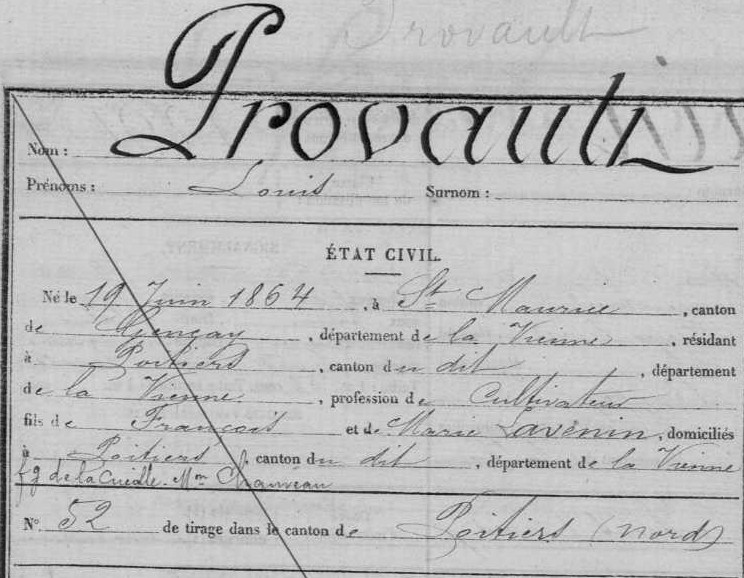 Provault
Nom : Provault
Prénoms : Louis Surnom :
ÉTAT CIVIL.
Né le 19 Juin 1864, à St Maurice, canton
de Gençay, département de la Vienne, résidant
à Poitiers, canton du dit, département
de la Vienne, profession de Cultivateur
fils de François et de Marie Lavenin, domiciliés
à Poitiers, canton du dit, département de la Vienne
fg de la Cueille. Mon Chauveau
N° 52 de tirage dans le canton de Poitiers (Nord)